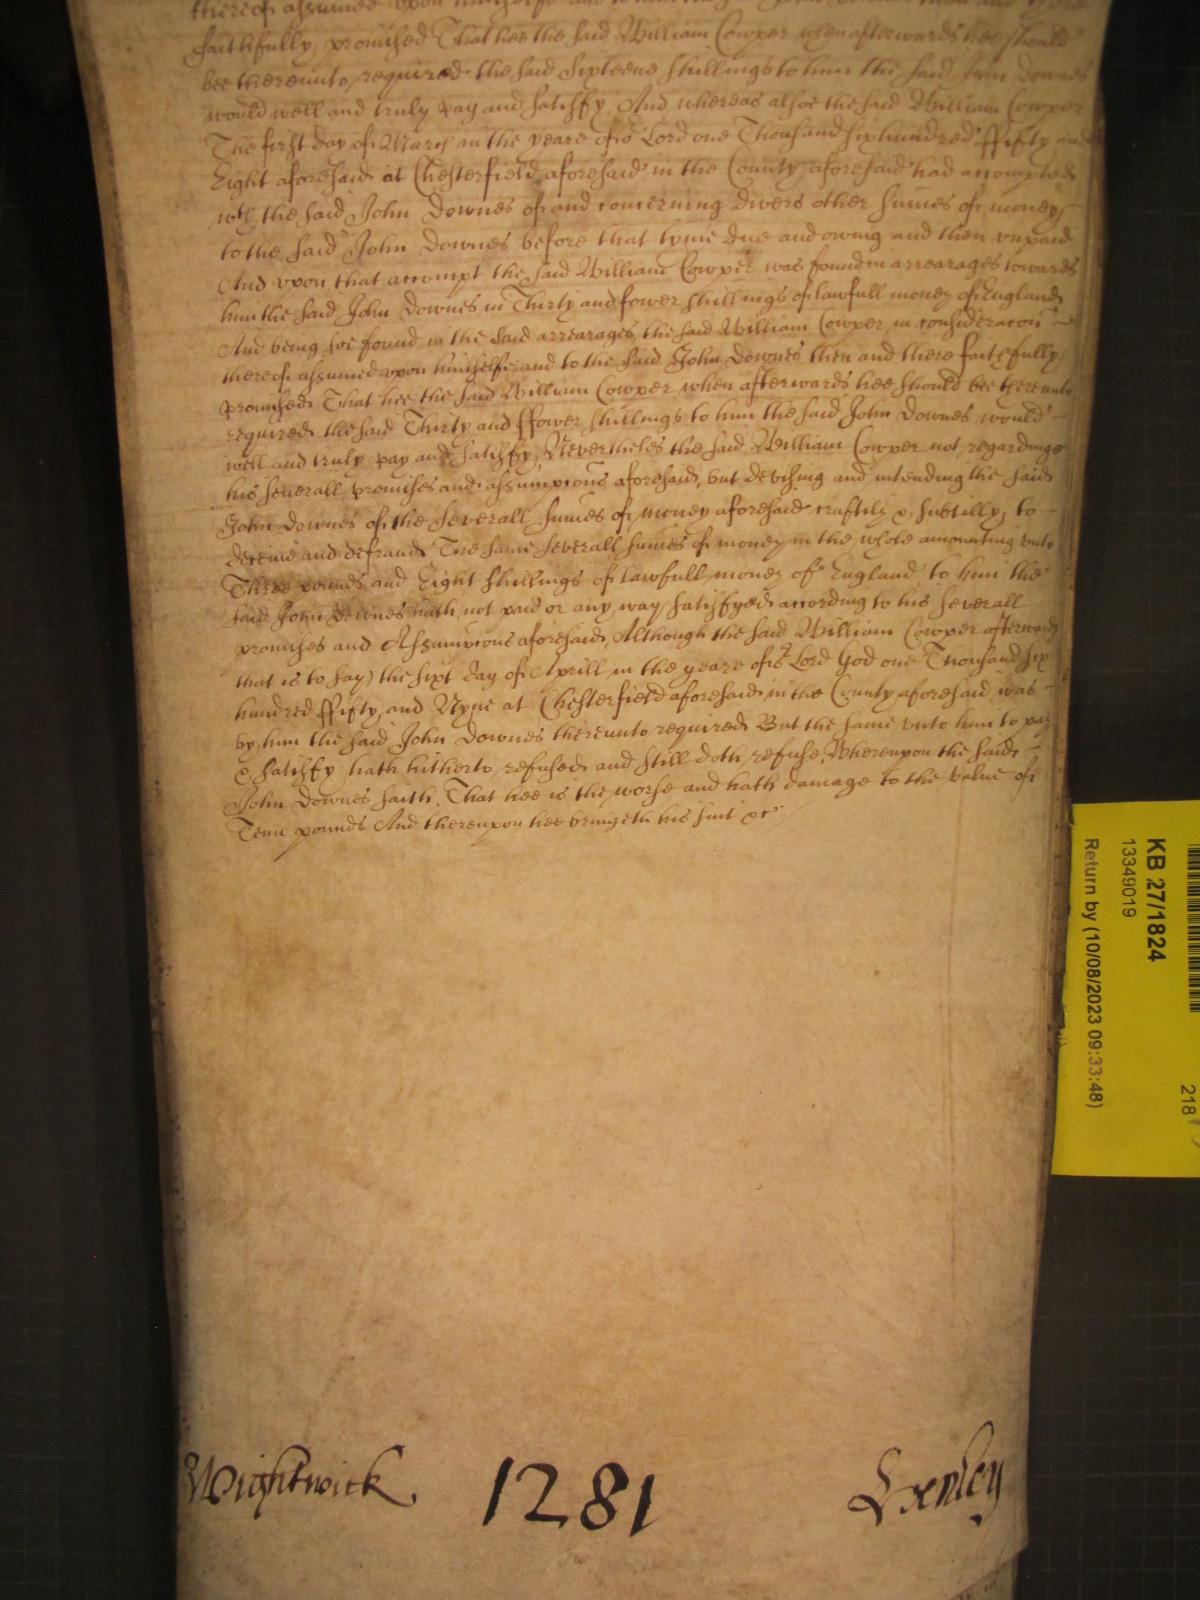 thereof assumed upon himselfe and to him the said John Downes then and there
faithfully promised That hee the said William Cowper when afterwards hee should
bee thereunto required the said Sixteene shillings to him the said John Downes
would well and truly pay and satisfy, And whereas alsoe the said William Cowper
The first day of March in the yeare of or Lord one Thousand six hundred ffifty and
Eight aforesaid at Chesterfield aforesaid in the County aforesaid had accompted
wth the said John Downes of and concerning divers other sumes of money
to the said John Downes before that tyme due and owing and then vnpaid
And vpon that accompt the said William Cowper was found in arrearages towards
him the said John Downes in Thirty and fower shillings of lawfull money of England
And being soe found in the said arrearages the said William Cowper in consideracon
thereof assumed upon himselfe and to the said John Downes then and there faithfully
promised That hee the said William Cowper when afterwards hee should bee thereunto
required the said Thirty and ffower shillings to him the said John Downes would
well and truly pay and satisfy, Neverthelес the said William Cowper not regardinge
his severall promises and assumpcons aforesaid, but devising and intending the said
John Downes of the severall sumes of money aforesaid craftily & subtilly to
deceive and defraud The same severall sumes of money in the whole amounting vnto
Three pounds and Eight shillings of lawfull money of England to him the
said John Downes hath not paid or any way satisfyed according to his severall
promises and Assumpcons aforesaid, Although the said William Cowper afterwards
that is to say) the sixt day of Aprill in the yeare of or Lord God one Thousand six
hundred ffifty and Nyne at Chesterfield aforesaid in the County aforesaid was
by him the said John Downes thereunto required But the same vnto him to pay
& satisfy hath hitherto refused and still doth refuse, Whereupon the said
John Downes saith, That hee is the worse and hath damage to the value of
Tenn pounds And thereupon hee bringeth his suit &c
Wightwick 1281
KB 27/1824
13349019
Return by (10/08/2023 09:33:48)
218